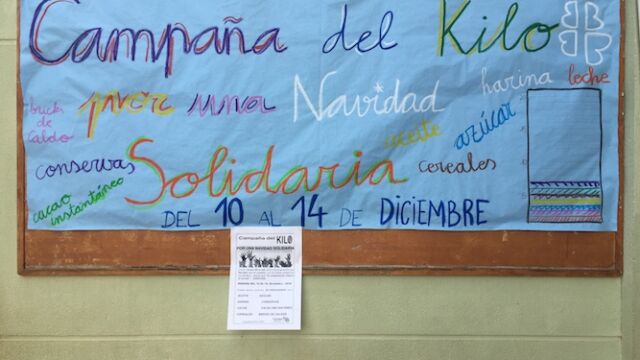 Campaña del Kilo
por una Navidad
harina leche
bricks
de
caldo
aceite
azúcar
conservas
Solidaria
cereales
cacao
instantáneo
DEL 10 AL 14 DE DICIEMBRE
Campaña del KILO
POR UNA NAVIDAD SOLIDARIA